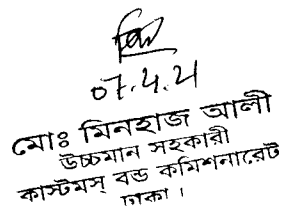 07.4.21
মোঃ মিনহাজ আলী
উচ্চমান সহকারী
কাস্টমস্ বন্ড কমিশনারেট
ঢাকা ।